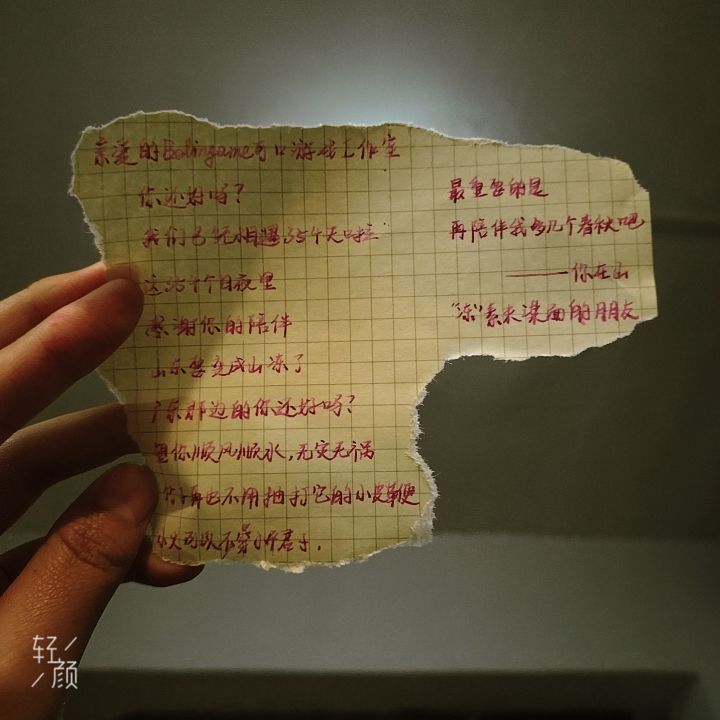 亲爱的Bolingame可口游戏工作室
你还好吗?
我们已经相遇354天啦
这354个日夜里
感谢你的陪伴
山东要变成山冻了
广东那边的你还好吗?
愿你顺风顺水,无灾无祸
再也不用抽打它的小皮鞭
小火 不 君子.
最重要的是
再陪伴我多几个春秋吧
——你在山
"冻"素未谋面的朋友
轻颜